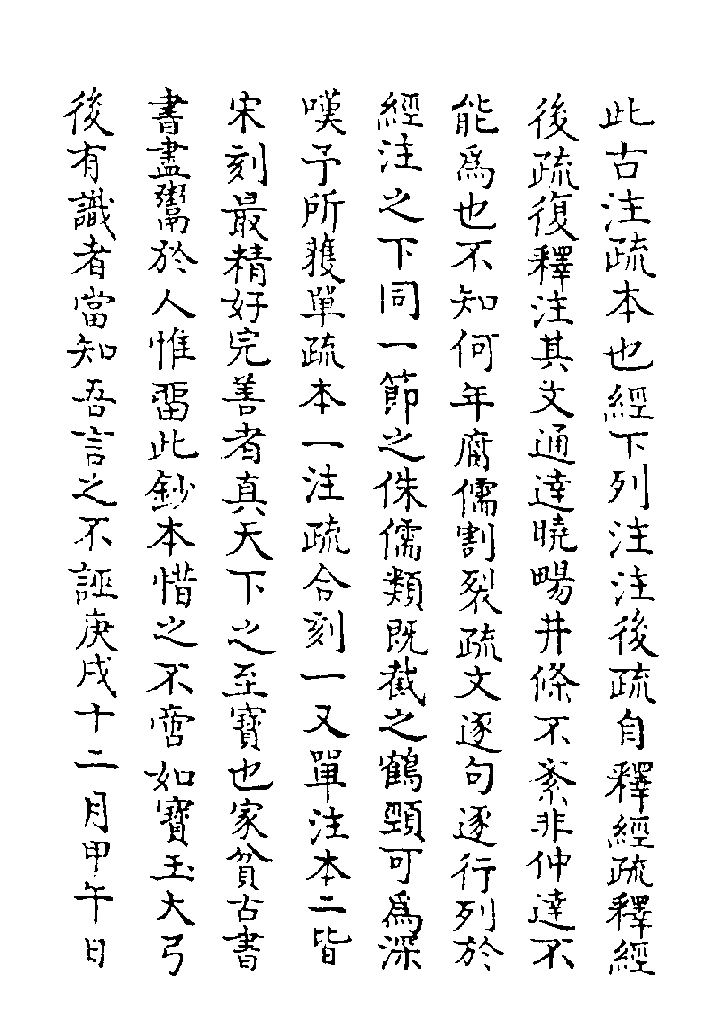 此古注疏本也經下列注注後疏自釋經疏釋經
後疏復釋注其文通達曉暢井條不紊非仲達不
能爲也不知何年腐儒割裂疏文逐句逐行列於
經注之下同一節之侏儒類既截之鶴頸可爲深
嘆予所獲單疏本一注疏合刻一又單注本二皆
宋刻最精好完善者真天下之至寶也家貧古書
書盡鬻於人惟畱此鈔本惜之不啻如寶玉大弓
後有識者當知吾言之不誣庚戌十二月甲午日